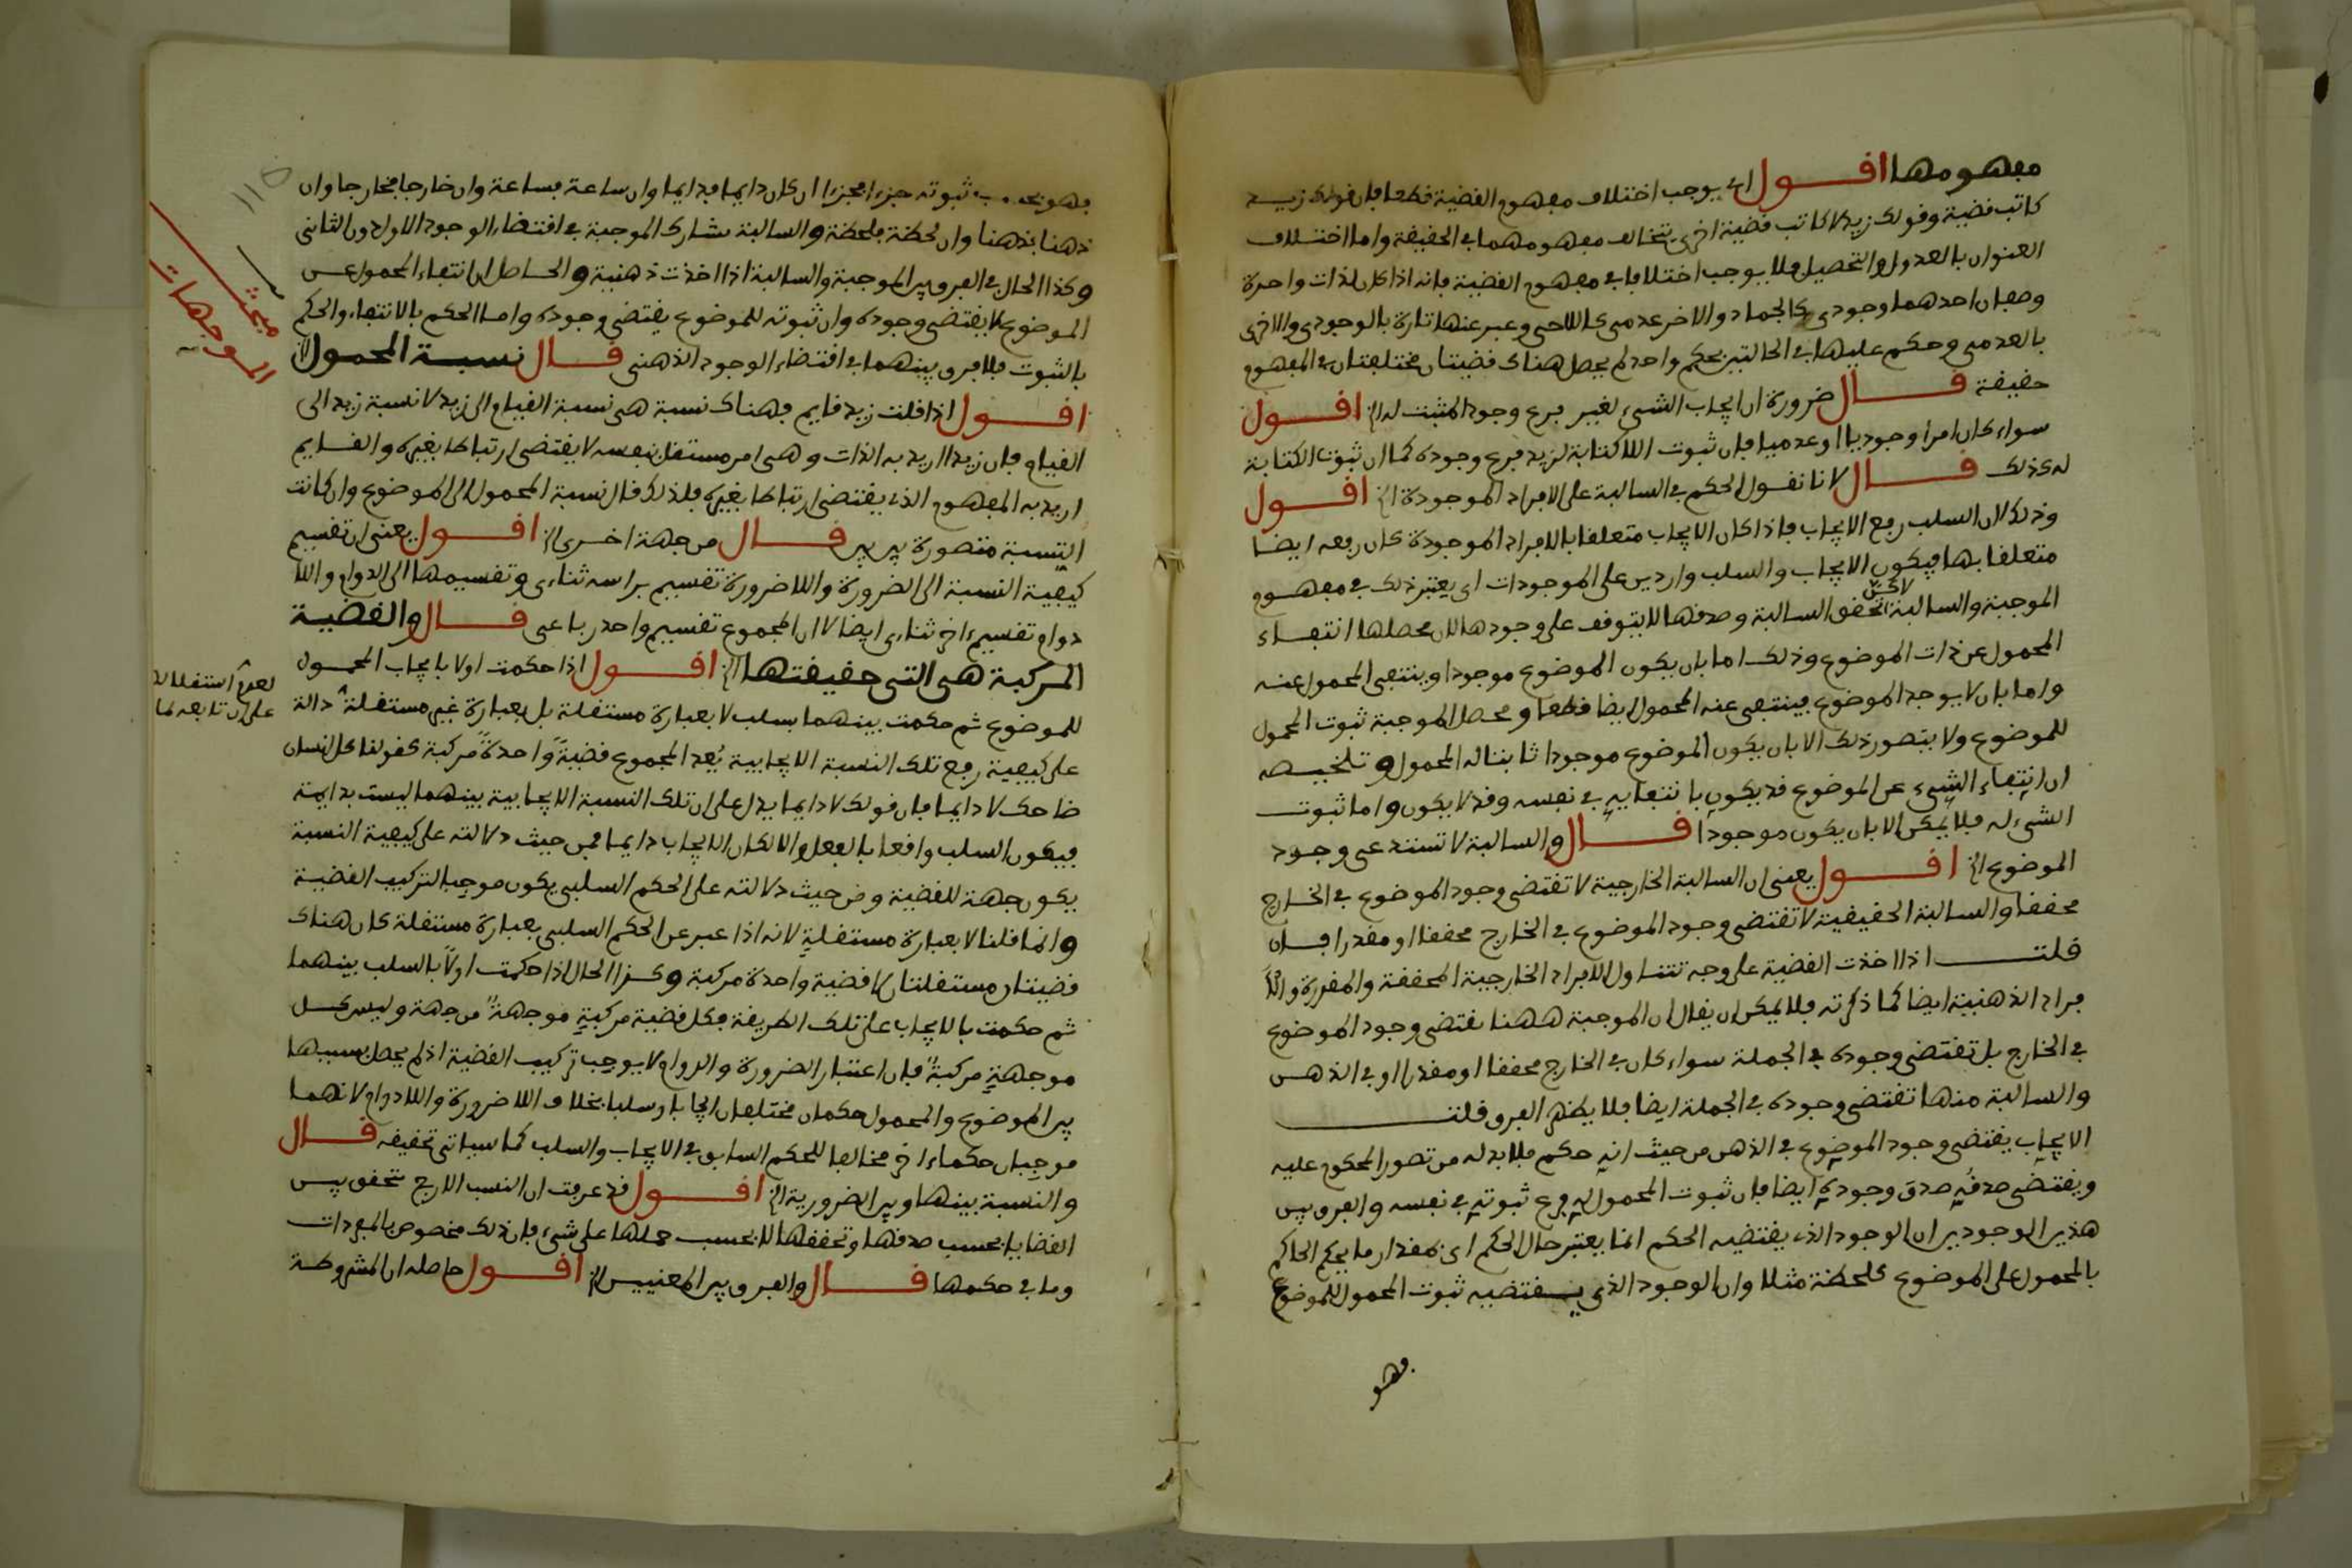 مفهومها اقول اى يوجب اختلاف مفهوم القضية قطعا فان قولك زيد
كاتب قضية وقولك زيد لا كاتب قضية اخرى تتخالف مفهومهما فى الحقيقة واما اختلاف
العنوان بالعدول والتحصيل فلا يوجب اختلافا فى مفهوم القضية فانه اذا كان لذات واحدة
وصفان احدهما وجودى كالجماد والاخر عدمى كاللاحى وعبر عنها تارة بالوجودى والاخرى
بالعدمى وحكم عليها فى الحالتين بحكم واحد لم يحصل هناك قضيتان مختلفتان فى المفهوم
حقيقة قال ضرورة ان ايجاب الشىء لغير فرع وجود المثبت له الخ اقول
سواء كان امرا وجوديا او عدميا فان ثبوت اللاكتابة لزيد فرع وجوده كما ان ثبوت الكتابة
له كذلك قال لانا نقول الحكم فى السالبة على الافراد الموجودة الخ اقول
وذلك لان السلب رفع الايجاب فاذا كان الايجاب متعلقا بالافراد الموجودة كان رفعه ايضا
متعلقا بها فيكون الايجاب والسلب واردين على الموجودات اى يعتبر ذلك فى مفهوم
الموجبة والسالبة لاكن تحقق السالبة وصدقها لا يتوقف على وجودها لان محصلها انتفاء
المحمول عن ذات الموضوع وذلك اما بان يكون الموضوع موجودا وينتفى المحمول عنه
واما بان لا يوجد الموضوع فينتفى عنه المحمول ايضا قطعا ومحصل الموجبة ثبوت المحمول
للموضوع ولا يتصور ذلك الا بان يكون الموضوع موجودا ثابتا له المحمول وتلخيصه
ان انتفاء الشىء عن الموضوع قد يكون بانتفايه فى نفسه وقد لا يكون واما ثبوت
الشىء له فلا يمكن الا بان يكون موجودا قال والسالبة لا تستدعى وجود
الموضوع الخ اقول يعنى ان السالبة الخارجية لا تقتضى وجود الموضوع فى الخارج
محققا والسالبة الحقيقية لا تقتضى وجود الموضوع فى الخارج محققا او مقدرا فان
قلت اذا اخذت القضية على وجه تتناول الافراد الخارجية المحققة والمقدرة والا
فراد الذهنية ايضا كما ذكرته فلا يمكن ان يقال ان الموجبة ههنا تقتضى وجود الموضوع
فى الخارج بل تقتضى وجوده فى الجملة سواء كان فى الخارج محققا او مقدرا او فى الذهن
والسالبة منها تقتضى وجوده فى الجملة ايضا فلا يظهر الفرق قلت
الايجاب يقتضى وجود الموضوع فى الذهن من حيث انه حكم فلا بد له من تصور المحكوم عليه
ويقتضى صدقه صدق وجوده ايضا فان ثبوت المحمول له فرع ثبوته فى نفسه والفرق بين
هذين الوجودين ان الوجود الذى يقتضيه الحكم انما يعتبر حال الحكم اى بمقدار ما يحكم الحاكم
بالمحمول على الموضوع كلحظة مثلا وان الوجود الذى يقتضيه ثبوت المحمول للموضوع
فهو
فهو بحسب ثبوته جزءا فجزءا ان كان دايما فدايما وان ساعة فساعة وان خارجا فخارجا وان
ذهنا فذهنا وان لحظة فلحظة والسالبة تشارك الموجبة فى اقتضاء الوجود الاول دون الثانى
وكذا الحال فى الفرق بين الموجبة والسالبة اذا اخذت ذهنية والحاصل ان انتفاء المحمول عن
الموضوع لا يقتضى وجوده وان ثبوته للموضوع يقتضى وجوده واما الحكم بالانتفاء والحكم
بالثبوت فلا فرق بينهما فى اقتضاء الوجود الذهنى قال نسبة المحمول الخ
اقول اذا قلت زيد قايم فهناك نسبة هى نسبة القيام الى زيد لا نسبة زيد الى
القيام فان زيدا اريد به الذات وهى امر مستقل بنفسه لا يقتضى ارتباطا بغيره والقايم
اريد به المفهوم الذى يقتضى ارتباطا بغيره فلذلك قال نسبة المحمول الى الموضوع وان كانت
النسبة متصورة بين بين قال من جهة اخرى الخ اقول يعنى ان تقسيم
كيفية النسبة الى الضرورة واللاضرورة تقسيم براسه ثناءى وتقسيمها الى الدوام واللا
دوام تقسيم ءاخر ثناءى ايضا لا ان المجموع تقسيم واحد رباعى قال والقضية
المركبة هى التى حقيقتها الخ اقول اذا حكمت اولا بايجاب المحمول
للموضوع ثم حكمت بينهما بسلب لا بعبارة مستقلة بل بعبارة غير مستقلة دالة
على كيفية رفع تلك النسبة الايجابية يُعد المجموع قضيةً واحدةً مركبة كقولنا كل انسان
ضاحك لا دايما فان قولك لا دايما يدل على ان تلك النسبة الايجابية بينهما ليست بدايمة
فيكون السلب واقعا بالفعل والا لكان الايجاب دايما فمن حيث دلالته على كيفية النسبة
يكون جهة للقضية ومن حيث دلالته على الحكم السلبى يكون موجبا لتركيب القضية
وانما قلنا لا بعبارة مستقلة لانه اذا عبر عن الحكم السلبى بعبارة مستقلة كان هناك
قضيتان مستقلتان لا قضية واحدة مركبة وكذا الحال اذا حكمت اولًا بالسلب بينهما
ثم حكمت بالايجاب على تلك الطريقة فكل قضية مركبةٍ موجهةٌ من جهة وليس كل
موجهةٍ مركبةً فان اعتبار الضرورة والدوام لا يوجب تركيب القضية اذ لم يحصل بسببها
بين الموضوع والمحمول حكمان مختلفان ايجابا وسلبا بخلاف اللاضرورة واللادوام لانهما
موجبان حكما ءاخر مخالفا للحكم السابق فى الايجاب والسلب كما سياتى تحقيقه قال
والنسبة بينها وبين الضرورية الخ اقول قد عرفت ان النسب الاربع تتحقق بين
القضايا بحسب صدقها وتحققها لا بحسب حملها على شىء فان ذلك مخصوص بالمفردات
وما فى حكمها قال والفرق بين المعنيين الخ اقول حاصله ان المشروطة
مبحث
الموجهات
لعدم استقلاله
115